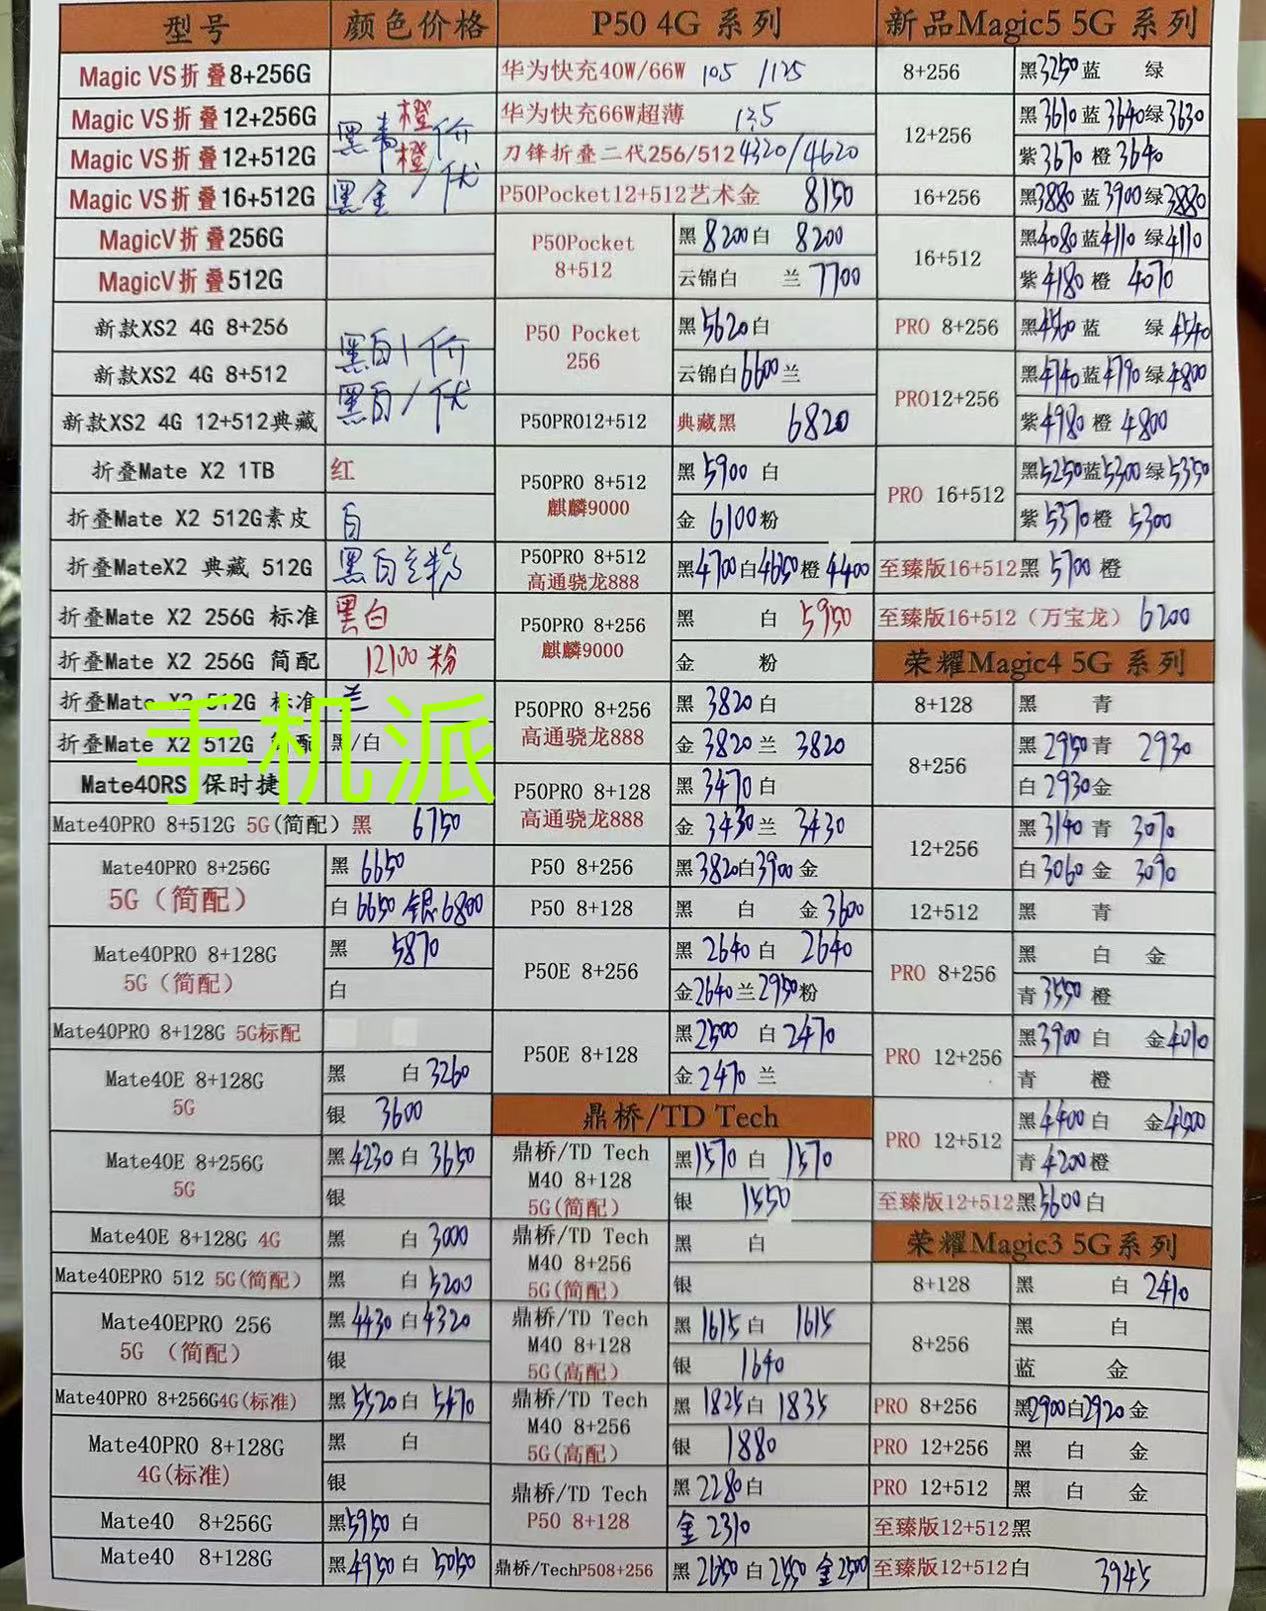 型号 颜色价格 P50 4G 系列 新品Magic5 5G 系列
Magic VS折叠8+256G
Magic VS折叠12+256G
Magic VS折叠12+512G
Magic VS折叠16+512G
黑青橙 价
橙 / 优
黑金
MagicV折叠256G
MagicV折叠512G
新款XS2 4G 8+256
新款XS2 4G 8+512
新款XS2 4G 12+512典藏
黑白 价
黑白/优
折叠Mate X2 1TB 红
折叠Mate X2 512G素皮 白
折叠MateX2 典藏 512G 黑白兰粉
折叠Mate X2 256G 标准 黑白
折叠Mate X2 256G 简配 12100 粉
折叠Mate X2 512G 标准 兰
折叠Mate X2 512G 简配 黑/白
手机派
Mate40RS 保时捷
Mate40PRO 8+512G 5G(简配) 黑 6750
Mate40PRO 8+256G
5G（简配）
黑 6650
白 6650 银 6800
Mate40PRO 8+128G
5G（简配）
黑 5870
白
Mate40PRO 8+128G 5G标配
Mate40E 8+128G
5G
黑 白 3260
银 3600
Mate40E 8+256G
5G
黑 4230 白 3650
银
Mate40E 8+128G 4G 黑 白 3000
Mate40EPRO 512 5G(简配) 黑 白 5200
Mate40EPRO 256
5G （简配）
黑 4430 白 4320
银
Mate40PRO 8+256G4G(标准) 黑 5520 白 5470
Mate40PRO 8+128G
4G(标准)
黑 白
银
Mate40 8+256G 黑 5950 白
Mate40 8+128G 黑 4950 白 5050
华为快充40W/66W 105 /125
华为快充66W超薄 135
刀锋折叠二代256/512 4320/4620
P50Pocket12+512艺术金 8150
P50Pocket
8+512
黑 8200 白 8200
云锦白 兰 7700
P50 Pocket
256
黑 5620 白
云锦白 6600 兰
P50PRO12+512 典藏黑 6820
P50PRO 8+512
麒麟9000
黑 5900 白
金 6100 粉
P50PRO 8+512
高通骁龙888
黑 4700 白 4650 橙 4400
P50PRO 8+256
麒麟9000
黑 白 5950
金 粉
P50PRO 8+256
高通骁龙888
黑 3820 白
金 3820 兰 3820
P50PRO 8+128
高通骁龙888
黑 3470 白
金 3430 兰 3430
P50 8+256 黑 3820 白 3900 金
P50 8+128 黑 白 金 3600
P50E 8+256
黑 2640 白 2640
金 2640 兰 2950 粉
P50E 8+128
黑 2500 白 2470
金 2470 兰
鼎桥/TD Tech
鼎桥/TD Tech
M40 8+128
5G(简配)
黑 1570 白 1570
银 1550
鼎桥/TD Tech
M40 8+256
5G(简配)
黑 白
银
鼎桥/TD Tech
M40 8+128
5G(高配)
黑 1615 白 1615
银 1640
鼎桥/TD Tech
M40 8+256
5G(高配)
黑 1825 白 1835
银 1880
鼎桥/TD Tech
P50 8+128
黑 2280 白
金 2310
鼎桥/TechP508+256 黑 2650 白 2550 金 2500
8+256 黑 3250 蓝 绿
12+256
黑 3610 蓝 3640 绿 3630
紫 3670 橙 3640
16+256 黑 3880 蓝 3900 绿 3880
16+512
黑 4080 蓝 4110 绿 4110
紫 4180 橙 4070
PRO 8+256 黑 4560 蓝 绿 4540
PRO12+256
黑 4740 蓝 4790 绿 4800
紫 4980 橙 4800
PRO 16+512
黑 5250 蓝 5300 绿 5350
紫 5370 橙 5300
至臻版16+512 黑 5700 橙
至臻版16+512（万宝龙） 6200
荣耀Magic4 5G 系列
8+128 黑 青
8+256
黑 2950 青 2930
白 2930 金
12+256
黑 3140 青 3070
白 3060 金 3090
12+512 黑 青
PRO 8+256
黑 白 金
青 3550 橙
PRO 12+256
黑 3900 白 金 4010
青 橙
PRO 12+512
黑 4400 白 金 4500
青 4200 橙
至臻版12+512 黑 5600 白
荣耀Magic3 5G系列
8+128 黑 白 2410
8+256
黑 白
蓝 金
PRO 8+256 黑 2900 白 2920 金
PRO 12+256 黑 白 金
PRO 12+512 黑 白 金
至臻版12+512黑
至臻版12+512白 3945